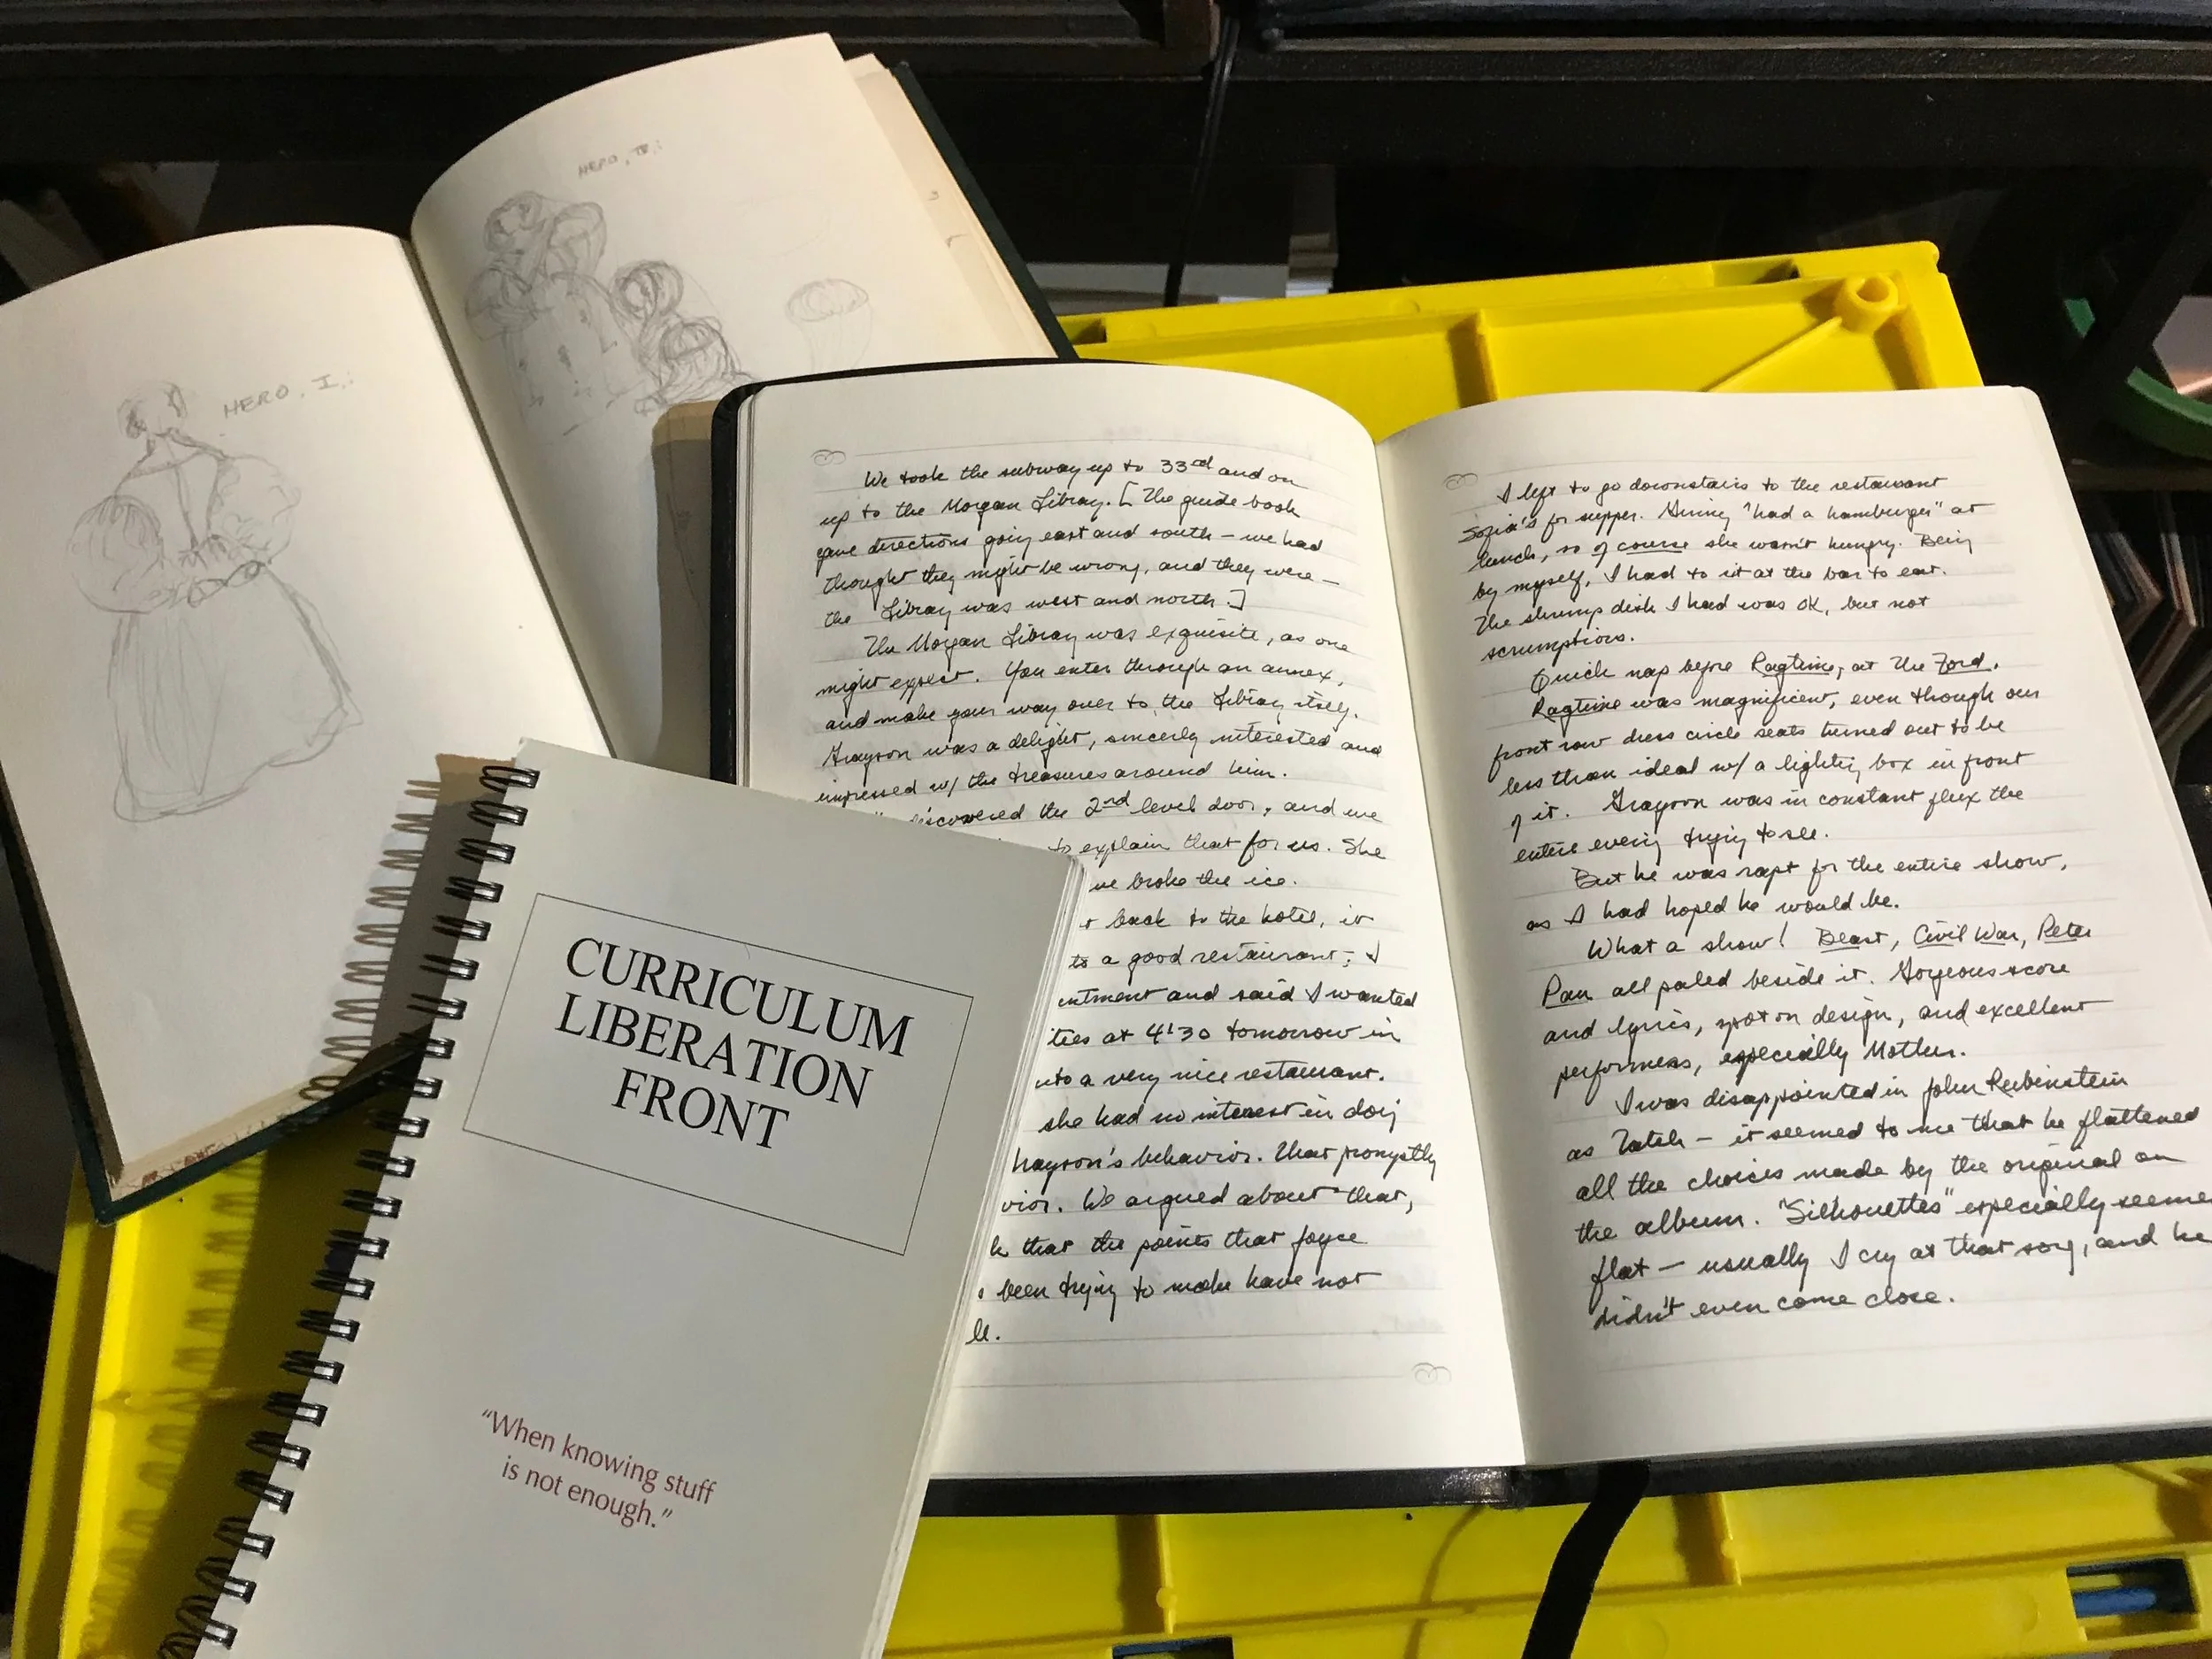 HERO, I.:
HERO, II.:
We took the subway up to 33rd and on
up to the Morgan Library. [The guide book
gave directions going east and south – we had
thought they might be wrong, and they were –
the Library was west and north.]
The Morgan Library was exquisite, as one
might expect. You enter through an annex,
and make your way over to the Library itself.
Grayson was a delight, sincerly interested and
impressed w/ the treasures around him.
discovered the 2nd level door, and we
to explain that for us. She
we broke the ice.
back to the hotel, it
to a good restaurant; I
and said I wanted
at 4:30 tomorrow in
a very nice restaurant.
she had no interest in doing
behavior. That promptly
We argued about that,
that the points that Joyce
been trying to make have not
CURRICULUM
LIBERATION
FRONT
“When knowing stuff
is not enough.”
I left to go downstairs to the restaurant
Sofia's for supper. Ginny "had a hamburger" at
lunch, so of course she wasn't hungry. Being
by myself, I had to sit at the bar to eat.
The shrimp dish I had was OK, but not
scrumptious.
Quick nap before Ragtime, at the Ford.
Ragtime was magnificent, even though our
front row dress circle seats turned out to be
less than ideal w/ a lighting box in front
of it. Grayson was in constant flux the
entire evening trying to see.
But he was rapt for the entire show,
as I had hoped he would be.
What a show! Beast, Civil War, Peter
Pan all paled beside it. Gorgeous score
and lyrics, spot on design, and excellent
performers, especially Mother.
I was disappointed in John Rubinstein
as Tateh – it seemed to me that he flattened
all the choices made by the original on
the album. "Silhouettes" especially
flat – usually I cry at that song, and he
didn't even come close.